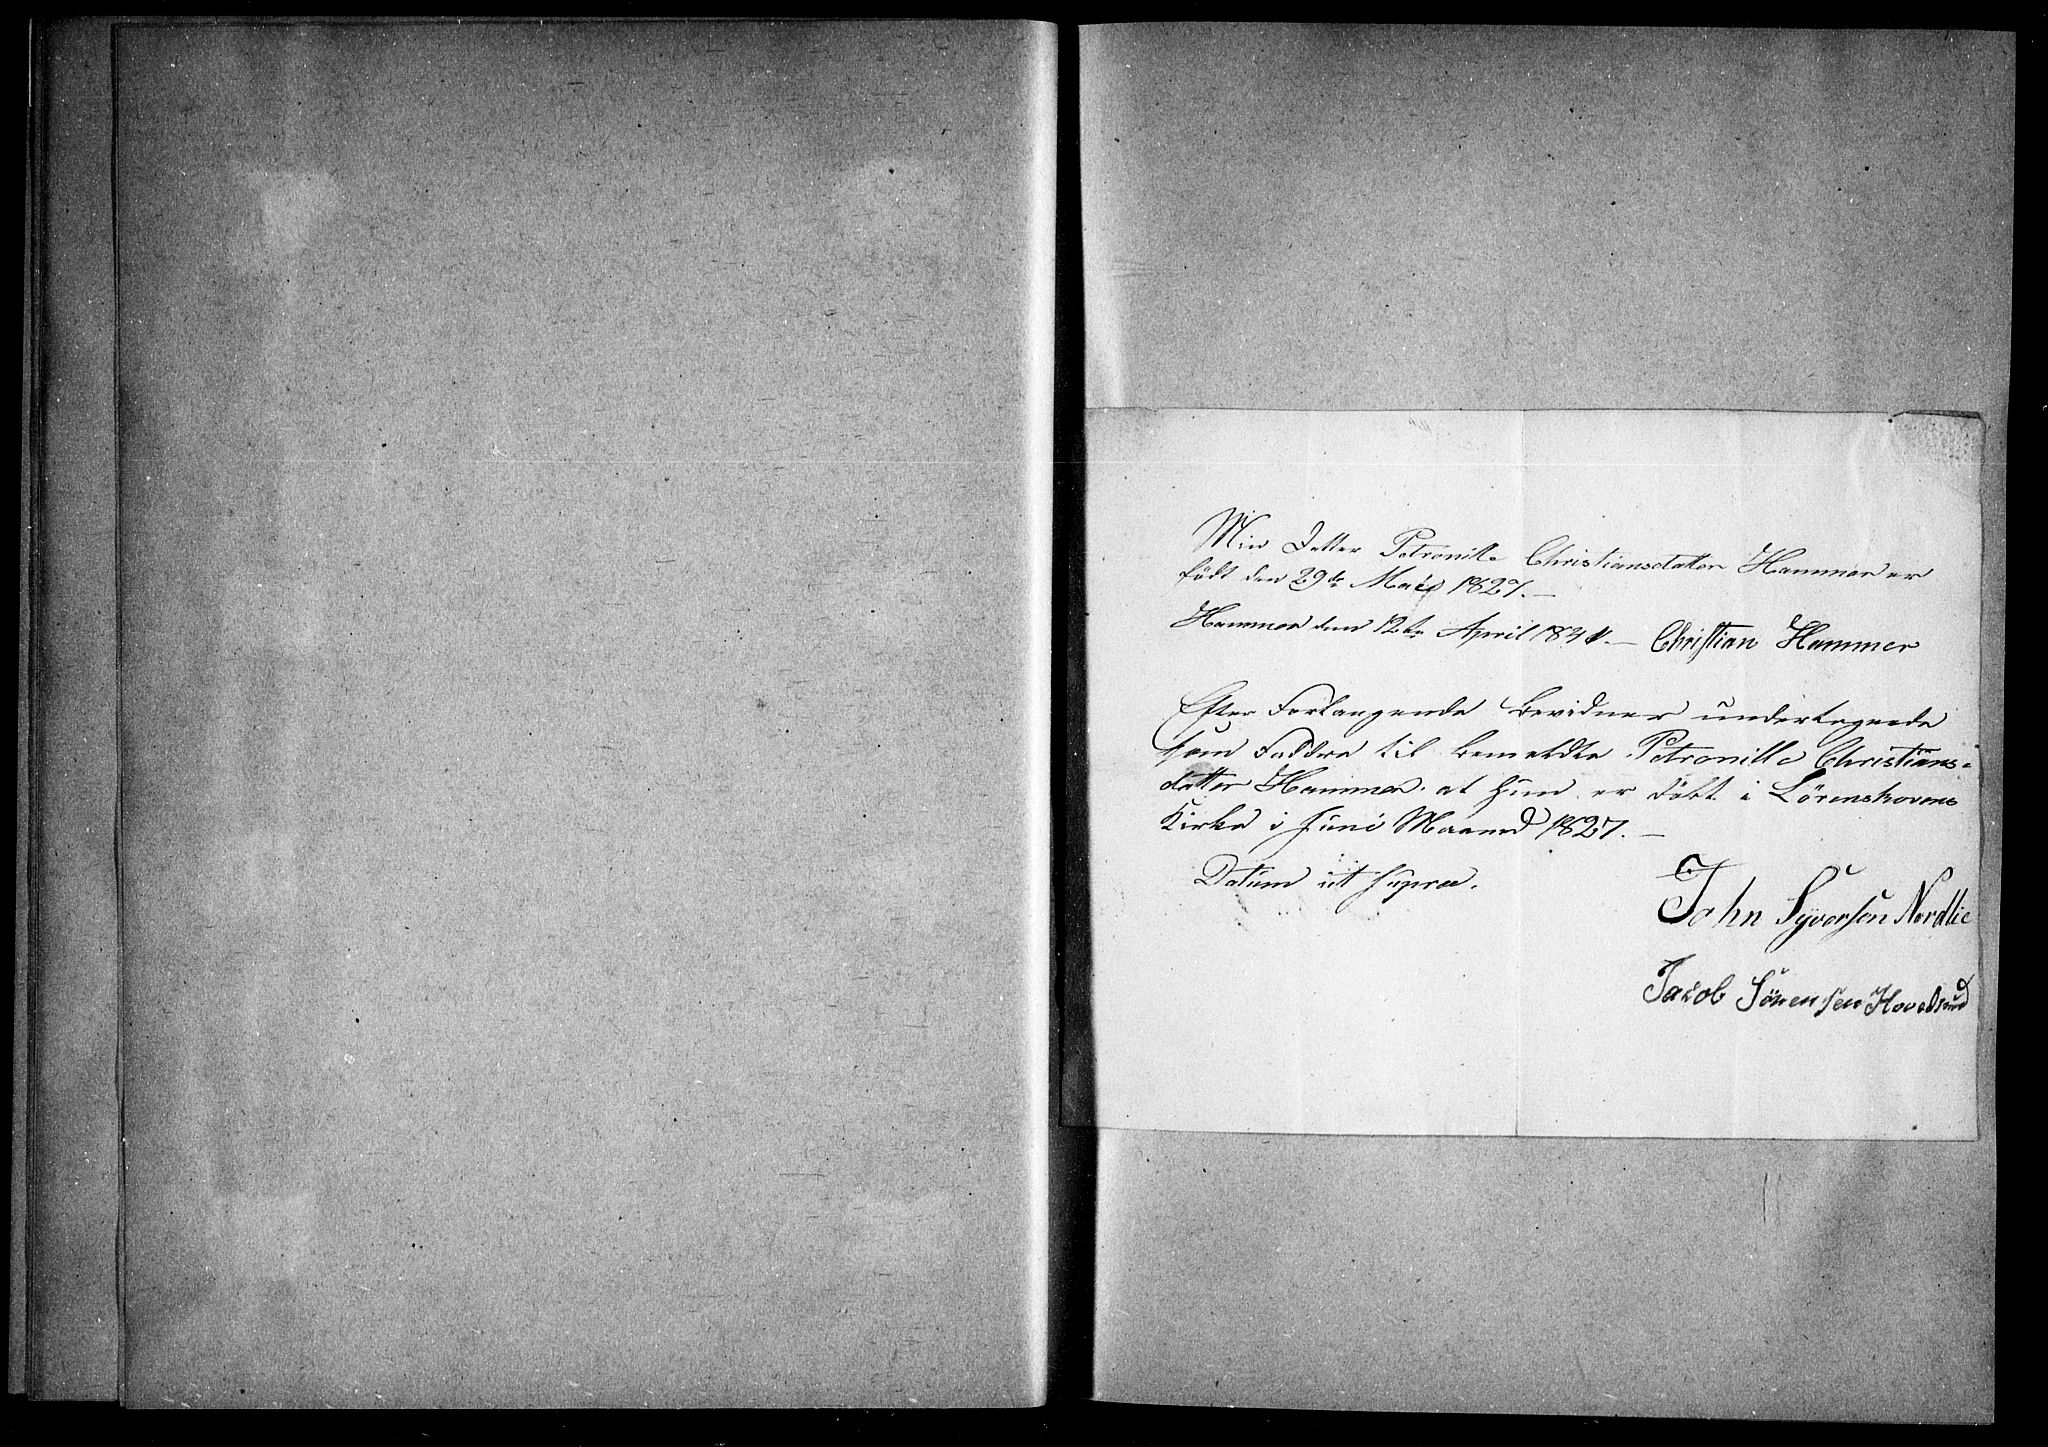 Min Datter Petronille Christiansdatter Hammer er
födt den 29de Maii 1827. —
Hammer den 12te April 184 — Christian Hammer
Efter Forlangende bevidner undertegnede
som Faddere til bemeldte Petronille Christians-
datter Hammer, at hun er döbt i Lörenskovens
Kirke i Juni Maaned 1827. —
Datum ut supra.
John Syversen Nordlie
Jacob Sörensen Hovelsrud